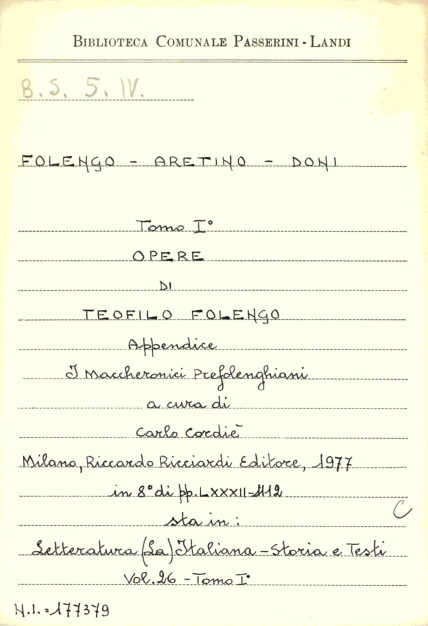 BIBLIOTECA COMUNALE PASSERINI - LANDI
B. S. 5. IV.
FOLENGO - ARETINO - DONI
Tomo I°
OPERE
DI
TEOFILO FOLENGO
Appendice
I Maccheronici Prefolenghiani
a cura di
Carlo Cordiè
Milano, Riccardo Ricciardi Editore, 1977
in 8° di pp. LXXXII-1112
sta in:
Letteratura (La) Italiana - Storia e Testi
Vol. 26 - Tomo I°
C
N.I. = 177379